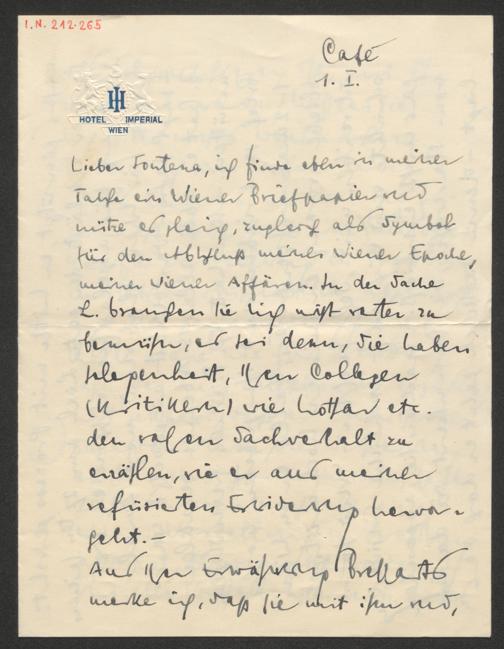 I.N. 212.265
Café
1. I.
HOTEL IMPERIAL
WIEN
Lieber Fontana, ich finde eben in meiner
Tasche ein Wiener Briefpapier und
nütze es gleich, zugleich als Symbol
für den Abschluß meiner Wiener Epoche,
meiner Wiener Affären. In der Sache
L. brauchen Sie sich nicht weiter zu
bemühen, es sei denn, Sie haben
Gelegenheit, Ihren Collegen
(Kritikern) wie etc.
den wahren Sachverhalt zu
erzählen, wie er aus meiner
refüsierten Erwiderung hervor-
geht.–
Aus Ihrer Erwähnung
merke ich, daß Sie mit ihm und,